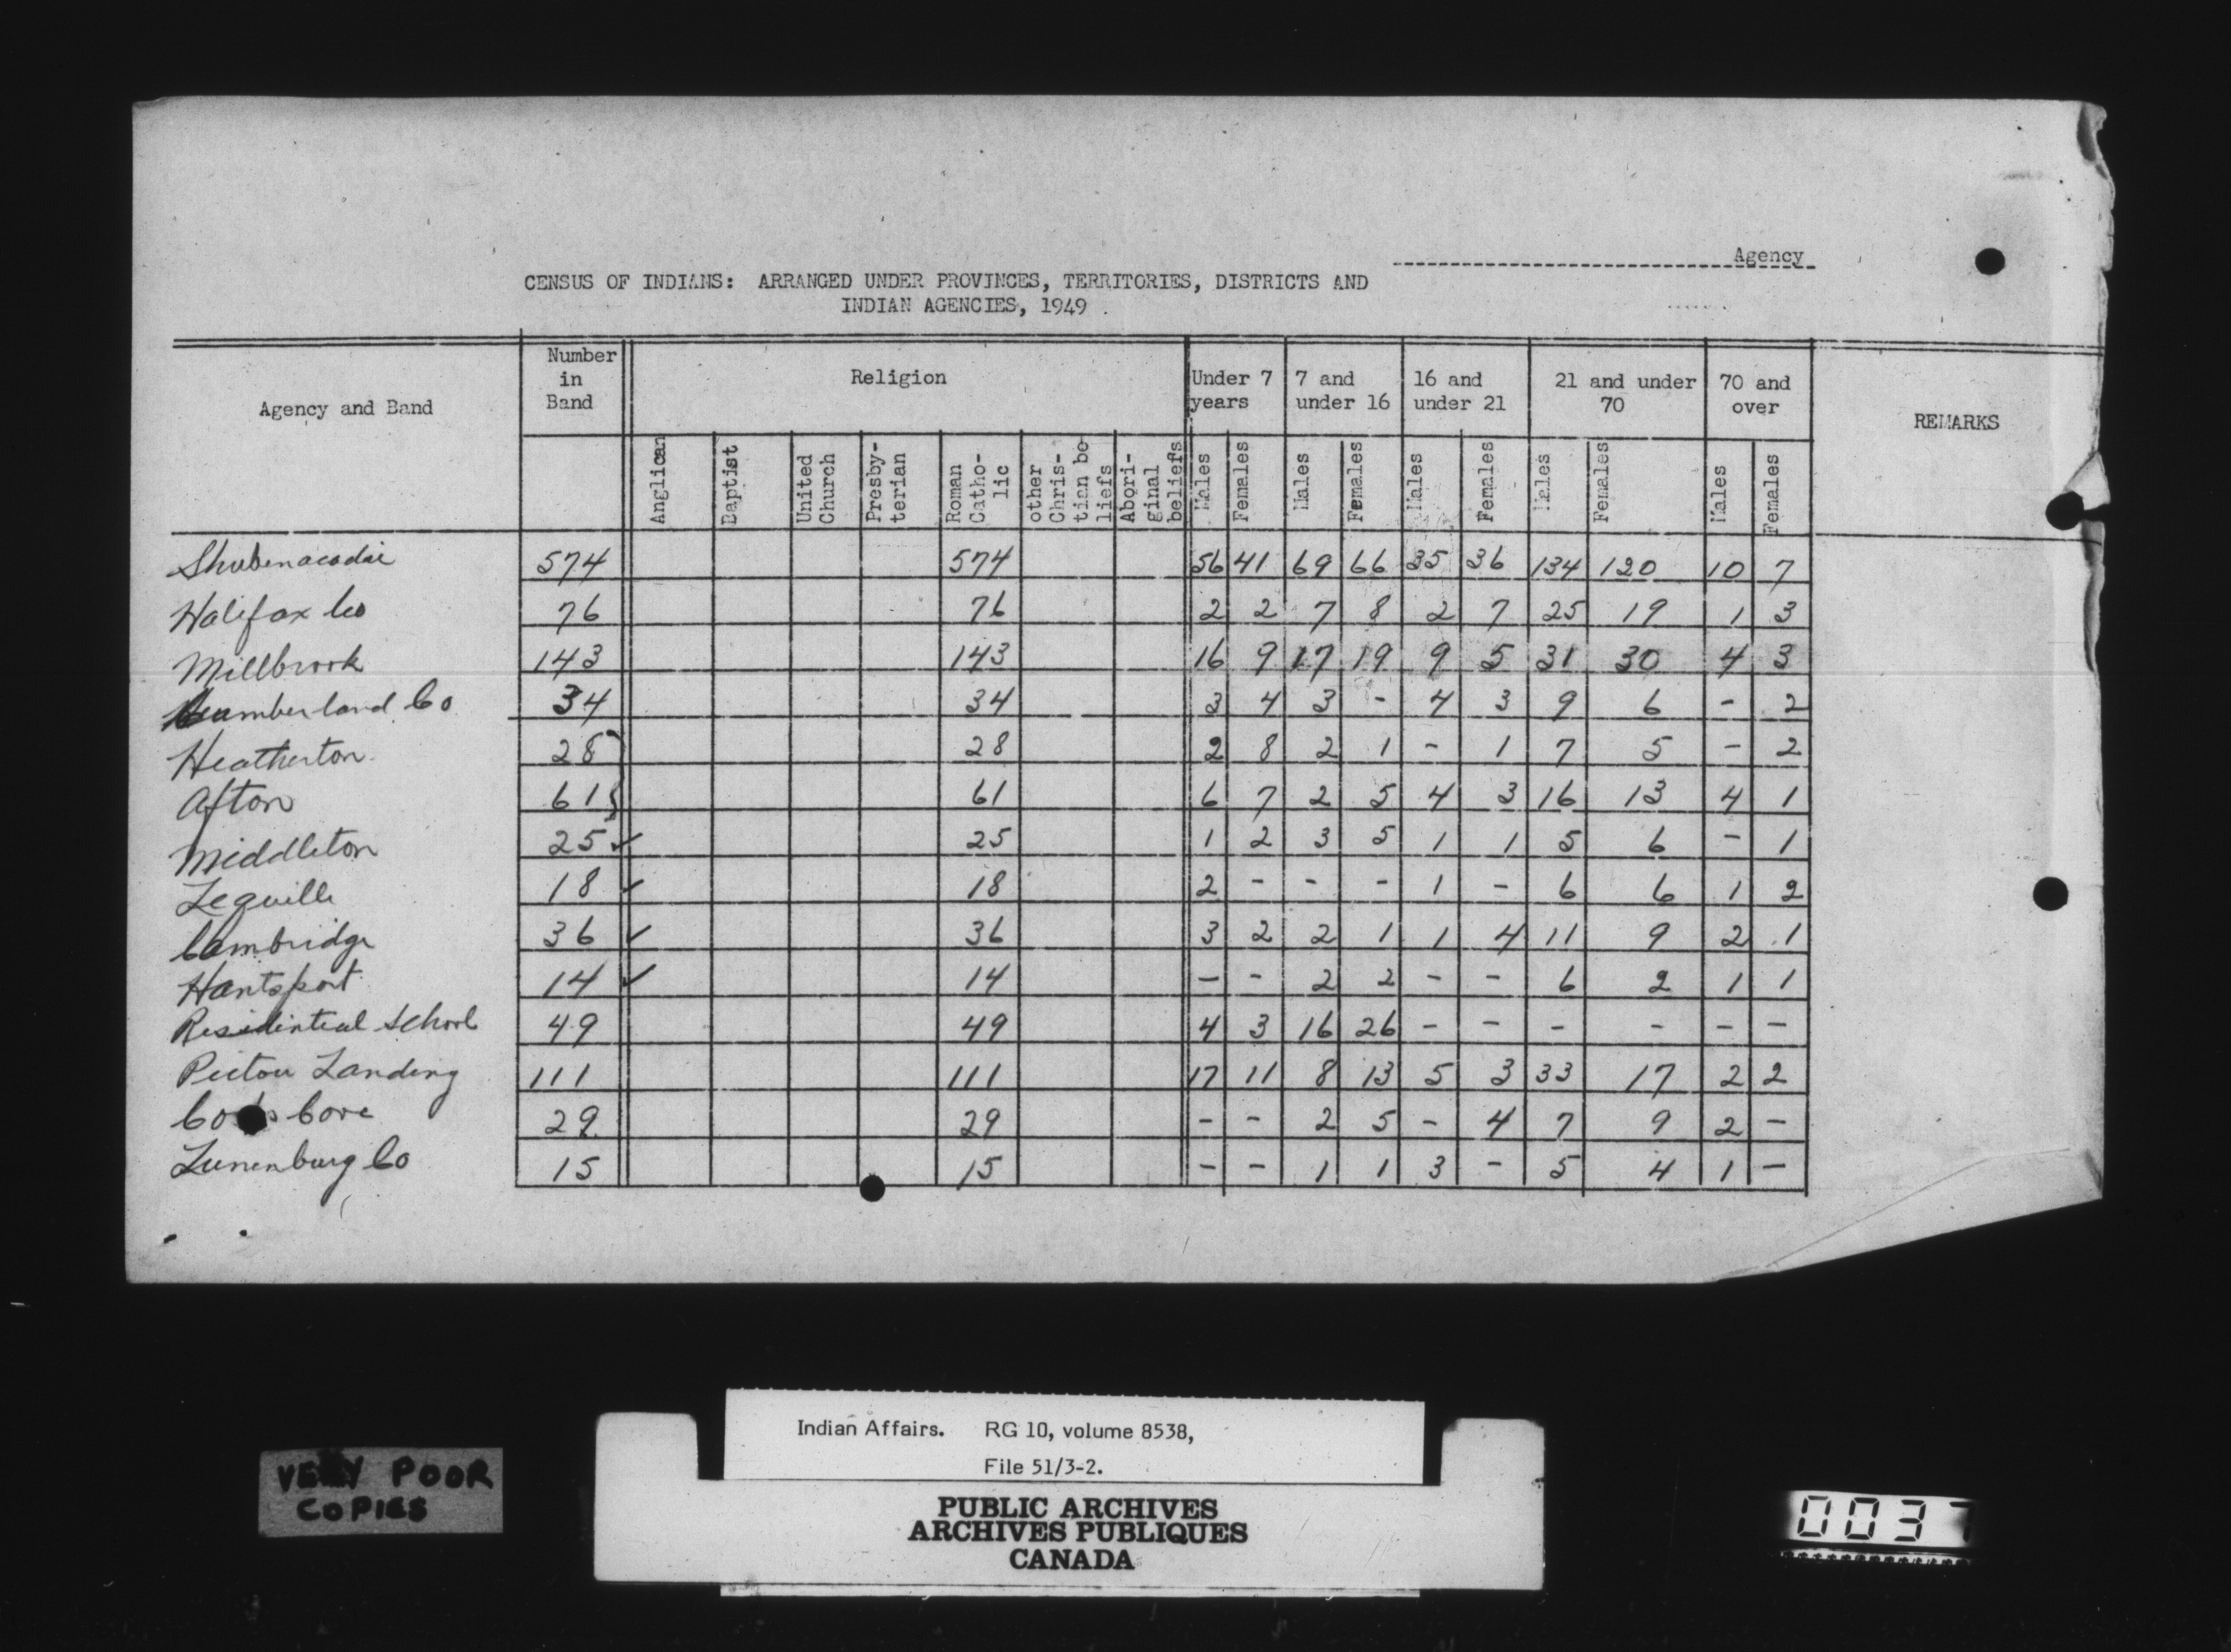 Agency
CENSUS OF INDIANS: ARRANGED UNDER PROVINCES, TERRITORIES, DISTRICTS AND
INDIAN AGENCIES, 1949
Agency and Band
Number
in
Band
Religion
Under 7
years
7 and
under 16
16 and
under 21
21 and under
70
70 and
over
REMARKS
Anglican
Baptist
United
Church
Presby-
terian
Roman
Catho-
lic
other
Chris-
tian be
liefs
Abori-
ginal
beliefs
Males
Females
Males
Females
Males
Females
Males
Females
Males
Females
Shubenacadie 574 574 56 41 69 66 35 36 134 120 10 7
Halifax Co 76 76 2 2 7 8 2 7 25 19 1 3
Millbrook 143 143 16 9 17 19 9 5 31 30 4 3
Cumberland Co 34 34 3 4 3 - 4 3 9 6 - 2
Heatherton 28 28 2 8 2 1 - 1 7 5 - 2
Afton 61 61 6 7 2 5 4 3 16 13 4 1
Middleton 25 ✓ 25 1 2 3 5 1 1 5 6 - 1
Lequille 18 ✓ 18 2 - - - 1 - 6 6 1 2
Cambridge 36 ✓ 36 3 2 2 1 1 4 11 9 2 1
Hantsport 14 ✓ 14 - - 2 2 - - 6 2 1 1
Residintial School 49 49 4 3 16 26 - - - - - -
Pictou Landing 111 111 17 11 8 13 5 3 33 17 2 2
Cove 29 29 - - 2 5 - 4 7 9 2 -
Lunenburg Co 15 15 - - 1 1 3 - 5 4 1 -
Indian Affairs. RG 10, volume 8538,
File 51/3-2.
PUBLIC ARCHIVES
ARCHIVES PUBLIQUES
CANADA
VERY POOR
COPIES
0037